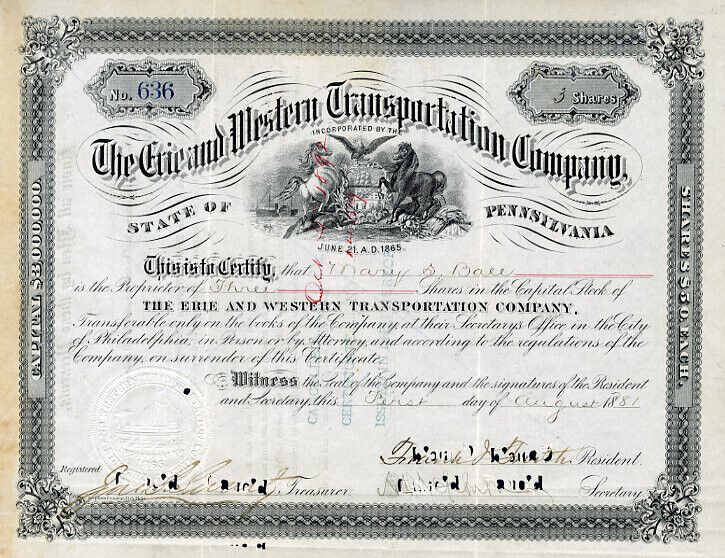 No. 636
3 Shares
The Erie and Western Transportation Company,
INCORPORATED BY THE
STATE OF PENNSYLVANIA
JUNE 21. A.D. 1865.
CAPITAL $3,000,000.
SHARES $50 EACH.
This is to Certify, that Mary S. Ball
is the Proprietor of Three Shares in the Capital Stock of
THE ERIE AND WESTERN TRANSPORTATION COMPANY.
Transferable only on the books of the Company, at their Secretary's Office in the City
of Philadelphia, in Person or by Attorney, and according to the regulations of the
Company, on surrender of this Certificate.
Witness the Seal of the Company and the signatures of the President
and Secretary, this First day of August 1881
President.
Registered
Treasurer
Secretary